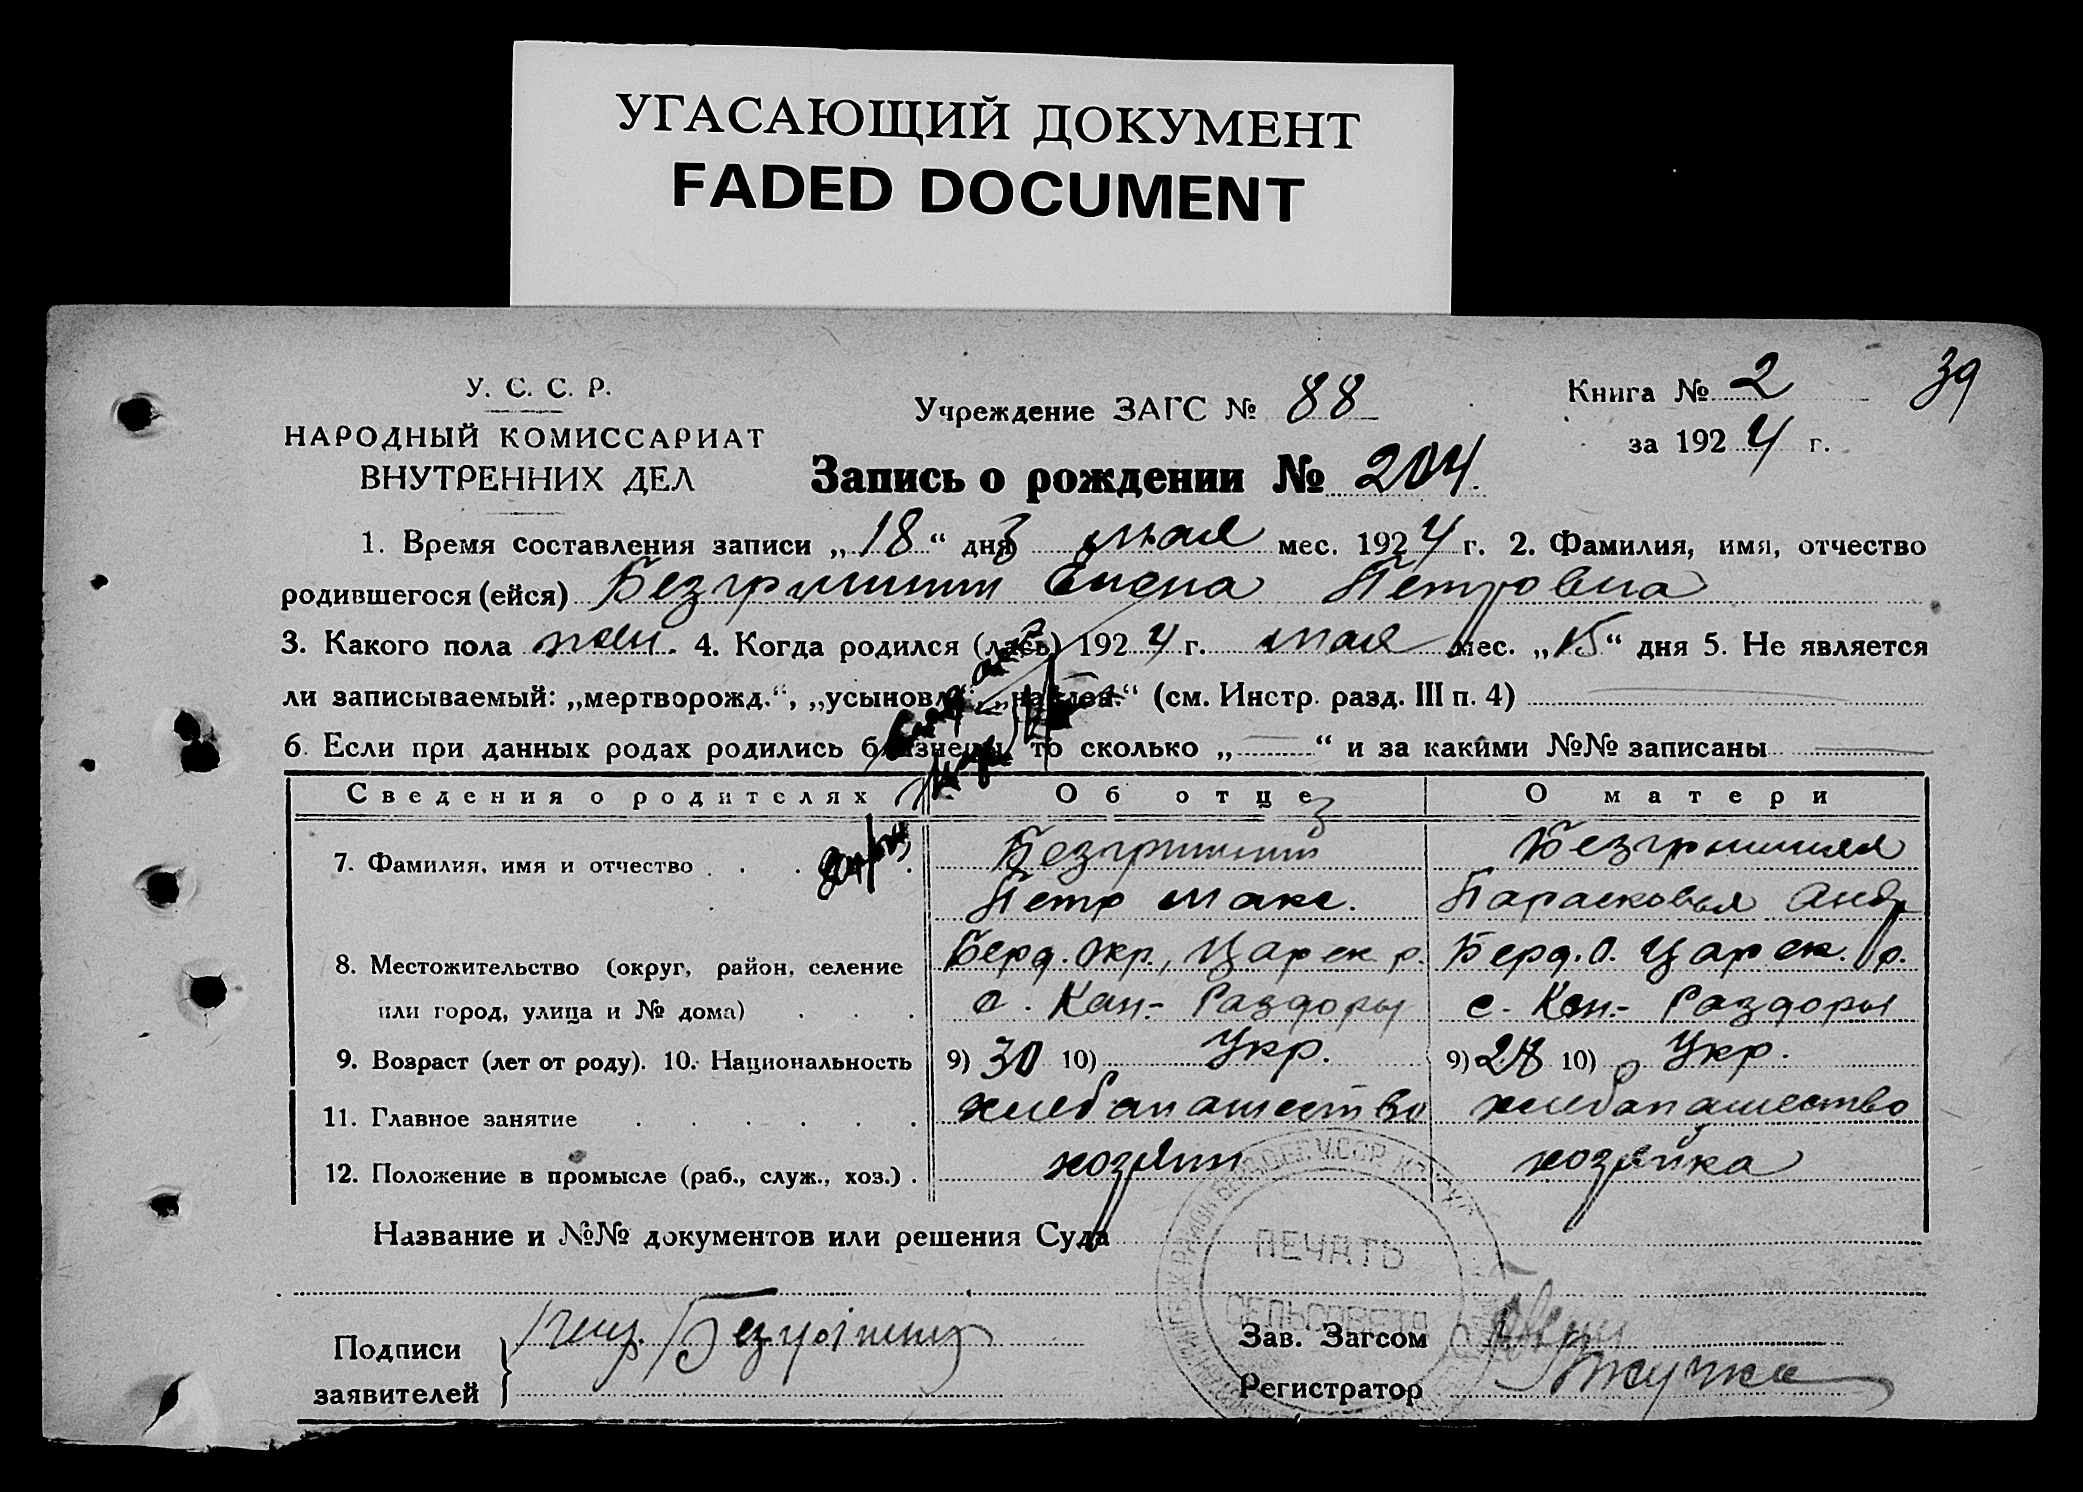 УГАСАЮЩИЙ ДОКУМЕНТ
FADED DOCUMENT
39
У. С. С. Р.
НАРОДНЫЙ КОМИССАРИАТ
ВНУТРЕННИХ ДЕЛ
Учреждение ЗАГС № 88
Книга № 2
за 1924 г.
Запись о рождении № 204
1. Время составления записи „18“ дня мая мес. 1924 г. 2. Фамилия, имя, отчество
родившегося (ейся) Елена Петровна
3. Какого пола жен. 4. Когда родился (лась) 1924 г. мая мес. „15“ дня 5. Не является
ли записываемый: „мертворожд.“, „усыновл.“, „найден.“ (см. Инстр. разд. III п. 4)
6. Если при данных родах родились близнецы, то сколько „—“ и за какими №№ записаны
Сведения о родителях Об отце О матери
7. Фамилия, имя и отчество
Петр Макс. Парасковья Андр
8. Местожительство (округ, район, селение Берд. окр., Царек. р. Берд. о. Царек. р.
или город, улица и № дома) с. Кан.- Раздоры с. Кан.- Раздоры
9. Возраст (лет от роду). 10. Национальность 9) 30 10) Укр. 9) 28 10) Укр.
11. Главное занятие хлебопашество хлебопашество
12. Положение в промысле (раб., служ., хоз.) хозяин хозяйка
Название и №№ документов или решения Суда
ПЕЧАТЬ
СЕЛЬСОВЕТА
Подписи
заявителей
Зав. Загсом
Регистратор